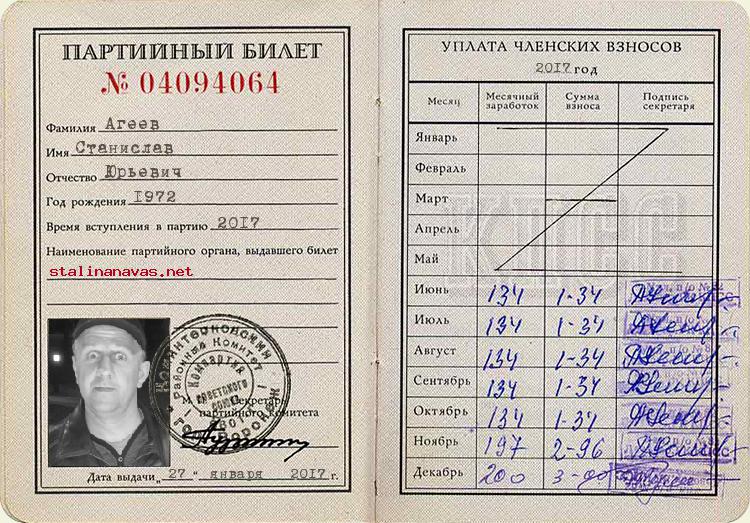 ПАРТИЙНЫЙ БИЛЕТ
№ 04094064
Фамилия Агеев
Имя Станислав
Отчество Юрьевич
Год рождения 1972
Время вступления в партию 2017
Наименование партийного органа, выдавшего билет
stalinanavas.net
Коминтерновский
Районный Комитет
г. Воронеж
Компартия
Советского
Союза
М. П. Секретарь
партийного комитета
Дата выдачи „27“ января 2017 г.
УПЛАТА ЧЛЕНСКИХ ВЗНОСОВ
2017 год
Месяц Месячный заработок Сумма взноса Подпись секретаря
Январь
Февраль
Март
Апрель
Май
КПСС
Июнь 134 1-34
Июль 134 1-34
Август 134 1-34
Сентябрь 134 1-34
Октябрь 134 1-34
Ноябрь 197 2-96
Декабрь 200